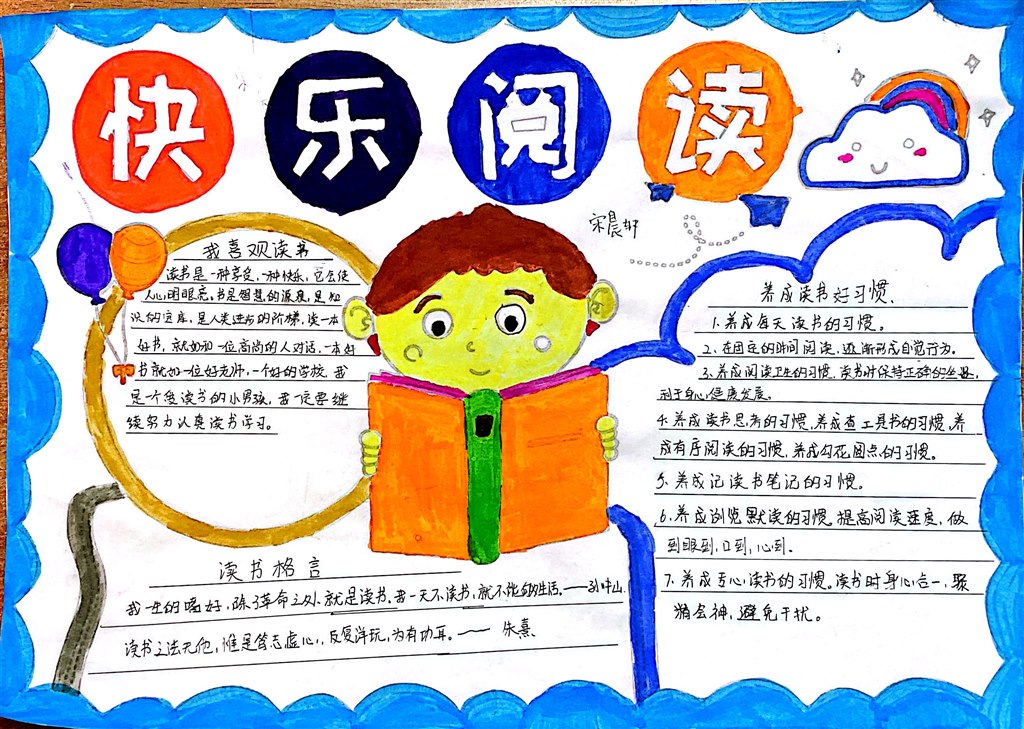 快乐阅读
宋晨
我喜观读书
读书是一种享受,一种快乐,它会使
人心明眼亮。书是智慧的源泉,是知
识的宝库,是人类进步的阶梯,读一本
好书,就如和一位高尚的人对话,一本好
书就如一位好老师,一个好的学校,我
是一个爱读书的小男孩,我一定要继
续努力认真读书学习。
养成读书好习惯、
1.养成每天读书的习惯。
2.在固定的时间阅读,逐渐形成自觉行为。
3.养成阅读卫生的习惯.读书时保持正确的坐姿,
利于身心健康发展。
4.养成读书思考的习惯,养成查工具书的习惯,养
成有序阅读的习惯,养成勾花圈点的习惯。
5.养成记读书笔记的习惯。
6.养成浏览默读的习惯。提高阅读速度,做
到眼到,口到,心到.
7.养成专心读书的习惯。读书时身心合一,聚
精会神,避免干扰。
读书格言
我一生的嗜好,除了革命之外,就是读书,我一天不读书,就不能够生活。——孙中山
读书之法无他,惟是笃志虚心,反复详玩,为有功耳。—— 朱熹